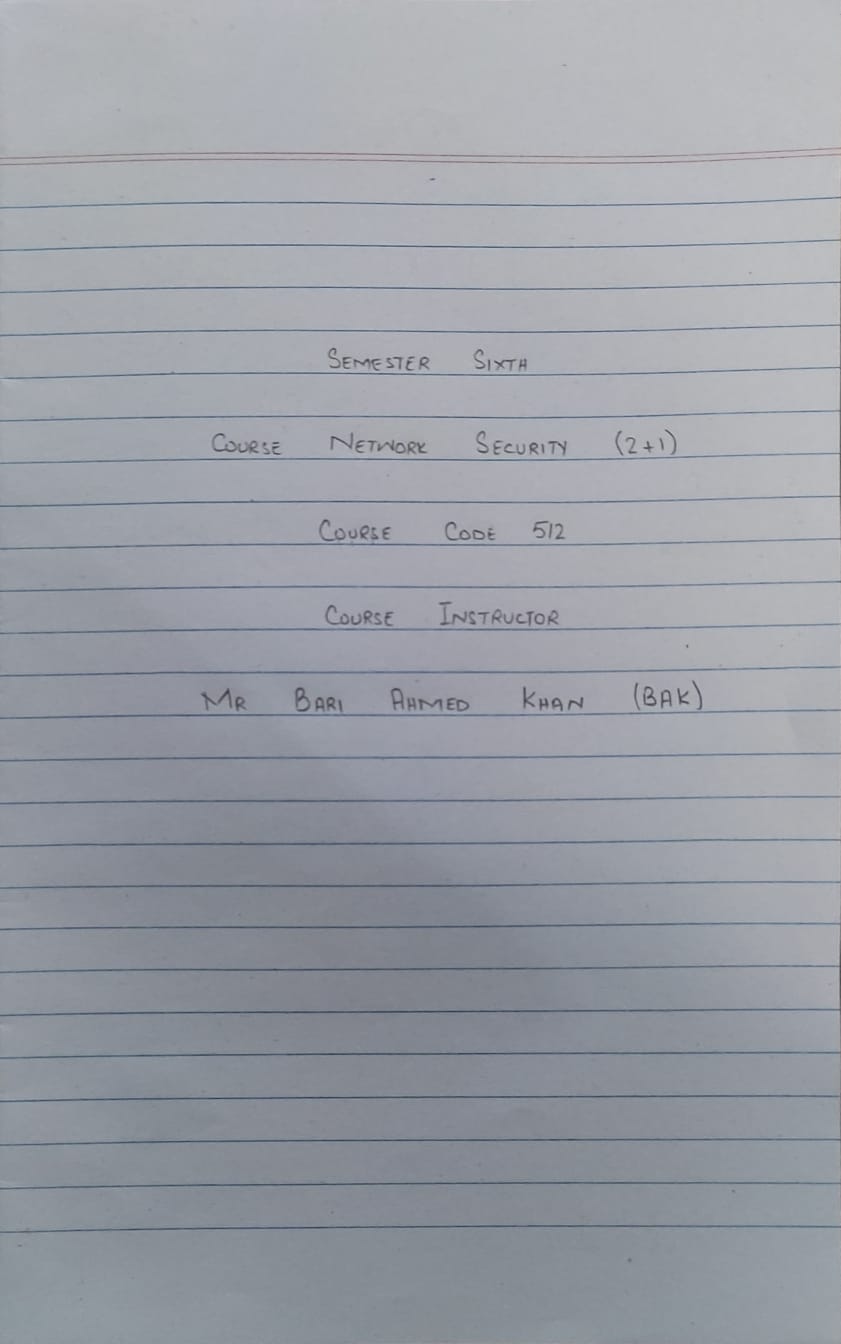 SEMESTER SIXTH
COURSE NETWORK SECURITY (2+1)
COURSE CODE 512
COURSE INSTRUCTOR
MR BARI AHMED KHAN (BAK)